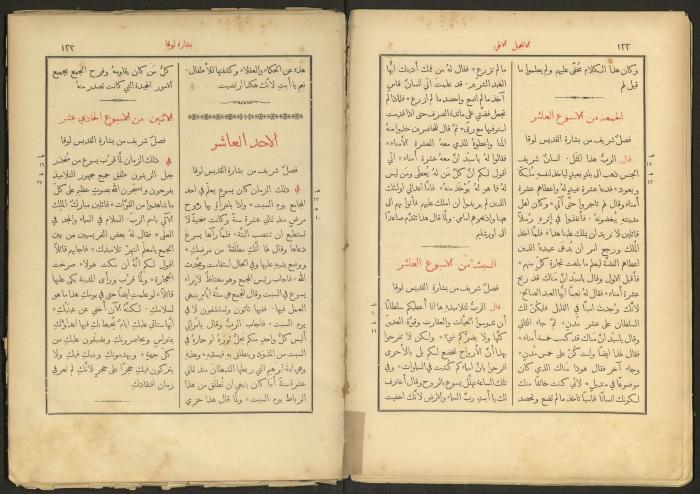 ١٢٢
الانجيل الالهي
وكان هذا الكلام مخفى عليهم ولم يعلموا ما
قيل لهم
الجمعة من الاسبوع العاشر
فصل شريف من بشارة القديس لوقا
قال الرب هذا المثل. انسان شريف
الجنس ذهب الى بلد بعيد ليأخذ لنفسه ملكًا
ويعود* فدعا عشرة عبيد له واعطاهم عشرة
أمناء وقال لهم تاجروا حتى آتي* وكان اهل
مدينته يبغضونه* فأنفذوا في إثره رسلاً
قائلين لا نريد ان يملك علينا هذا* فلما اخذ
الملك ورجع امر ان يدعى عبيده الذين
اعطاهم الفضة ليعلم ما بلغت تجارة كل منهم*
فأقبل الاول وقال ياسيد انَّ مناك قد ربح
عشرة أمناء* فقال له نعمَّا ايها العبد الصالح*
لانك وُجدت امينًا في القليل فليكن لك
السلطان على عشر مدن* ثم جاء الثاني
وقال ياسيد انَّ مناك قد كسب خمسة أمناء*
فقال لهذا ايضًا وانت كن على خمس مدن*
وجاء آخر فقال هوذا مناك الذي كان
موضوعًا في منديل* لأني كنت خائفًا منك
لكونك انسانًا قاسيًا تأخذ ما لم تضع وتحصد
ما لم تزرع* فقال له من فمك أدينك ايها
العبد الشرير. قد علمت أني انسانٌ قاسٍ
آخذ ما لم اضع واحصد ما لم ازرع* فلماذا لم
تجعل فضتي على مائدة الصرف حتى اذا قدمت
استوفيها مع ربى* ثم قال للحاضرين خذوا منه
المنا واعطوه للذي معه العشرة الأمناء*
فقالوا له ياسيد انَّ معه عشرة أمناء* اني
اقول لكم انَّ كل من له يُعطى ومن ليس
له فما هو له يؤخذ منه* فأما اعدائي اولئك
الذين لم يريدوا ان املك عليهم فأتوا بهم الى
هنا واذبحوهم امامي* ولما قال هذا تقدم صاعدًا
الى اورشليم
السبت من الاسبوع العاشر
فصل شريف من بشارة القديس لوقا
قال الرب لتلاميذه ها أنا أعطيكم سلطانًا
أن تدوسوا الحيات والعقارب وقوة العدو
كلها ولا يضركم شيء* ولكن لا تفرحوا
بهذا أنَّ الارواح تخضع لكم بل بالأحرى
افرحوا بأنَّ اسماءكم كُتبت في السموات* وفي
تلك الساعة تهلل يسوع بالروح وقال أعترف
لك يا أبتِ ربَّ السماء والارض لأنك اخفيت
بشارة لوقا
١٢٣
هذه عن الحكماء والعقلاء وكشفتها للأطفال.
نعم يا أبتِ لأنك هكذا ارتضيت
الاحد العاشر
فصل شريف من بشارة القديس لوقا
في ذلك الزمان كان يسوع يعلم في احد
المجامع يوم السبت* واذا بامرأة بها روح
مرض منذ ثماني عشرة سنة وكانت منحنية لا
تستطيع ان تنتصب البتة* فلما رآها يسوع
دعاها وقال لها انكِ مطلقة من مرضكِ*
ووضع يديه عليها وفي الحال استقامت ومجدت
الله* فأجاب رئيس المجمع وهو مغتاظ لإبراء
يسوع في السبت وقال للجمع هي ستة ايام ينبغي
العمل فيها. ففيها تأتون وتستشفون لا في
يوم السبت* فاجاب الرب وقال يا مرائي
أليس كل واحد منكم يحل ثوره او حماره في
السبت من المذود وينطلق به فيسقيه* وهذه
وهي ابنة ابرهيم التي ربطها الشيطان منذ ثماني
عشرة سنة أما كان ينبغي ان تُطلق من هذا
الرباط يوم السبت* ولما قال هذا خزي
كل من كان يقاومه وفرح الجمع بجميع
الامور المجيدة التي كانت تصدر منه
الاثنين من الاسبوع الحادي عشر
فصل شريف من بشارة القديس لوقا
في ذلك الزمان لما قرب يسوع من منحدر
جبل الزيتون طفق جميع جمهور التلاميذ
يفرحون ويسبحون الله بصوت عظيم على كل
ما شاهدوا من القوات* قائلين مبارك الملك
الآتي باسم الرب. السلام في السماء والمجد في
العلى* فقال له بعض الفريسيين من بين
الجمع يا معلم انتهر تلاميذك* فأجابهم قائلاً
اقول لكم انه ان سكت هؤلاء صرخت
الحجارة* ولما قرب ورأى المدينة بكى عليها
قائلاً* لو علمتِ ايضًا حتى في يومكِ هذا ما هو
لسلامكِ. لكنه الآن اخفي عن عينيكِ*
انها ستأتي عليكِ ايام يحيط بكِ فيها اعداؤكِ
بمتراس ويحاصرونكِ ويضيقون عليكِ من
كل جهة* ويهدمونكِ وبنيكِ فيكِ ولا
يتركون فيكِ حجرًا على حجر لأنكِ لم تعرفي
زمان افتقادكِ